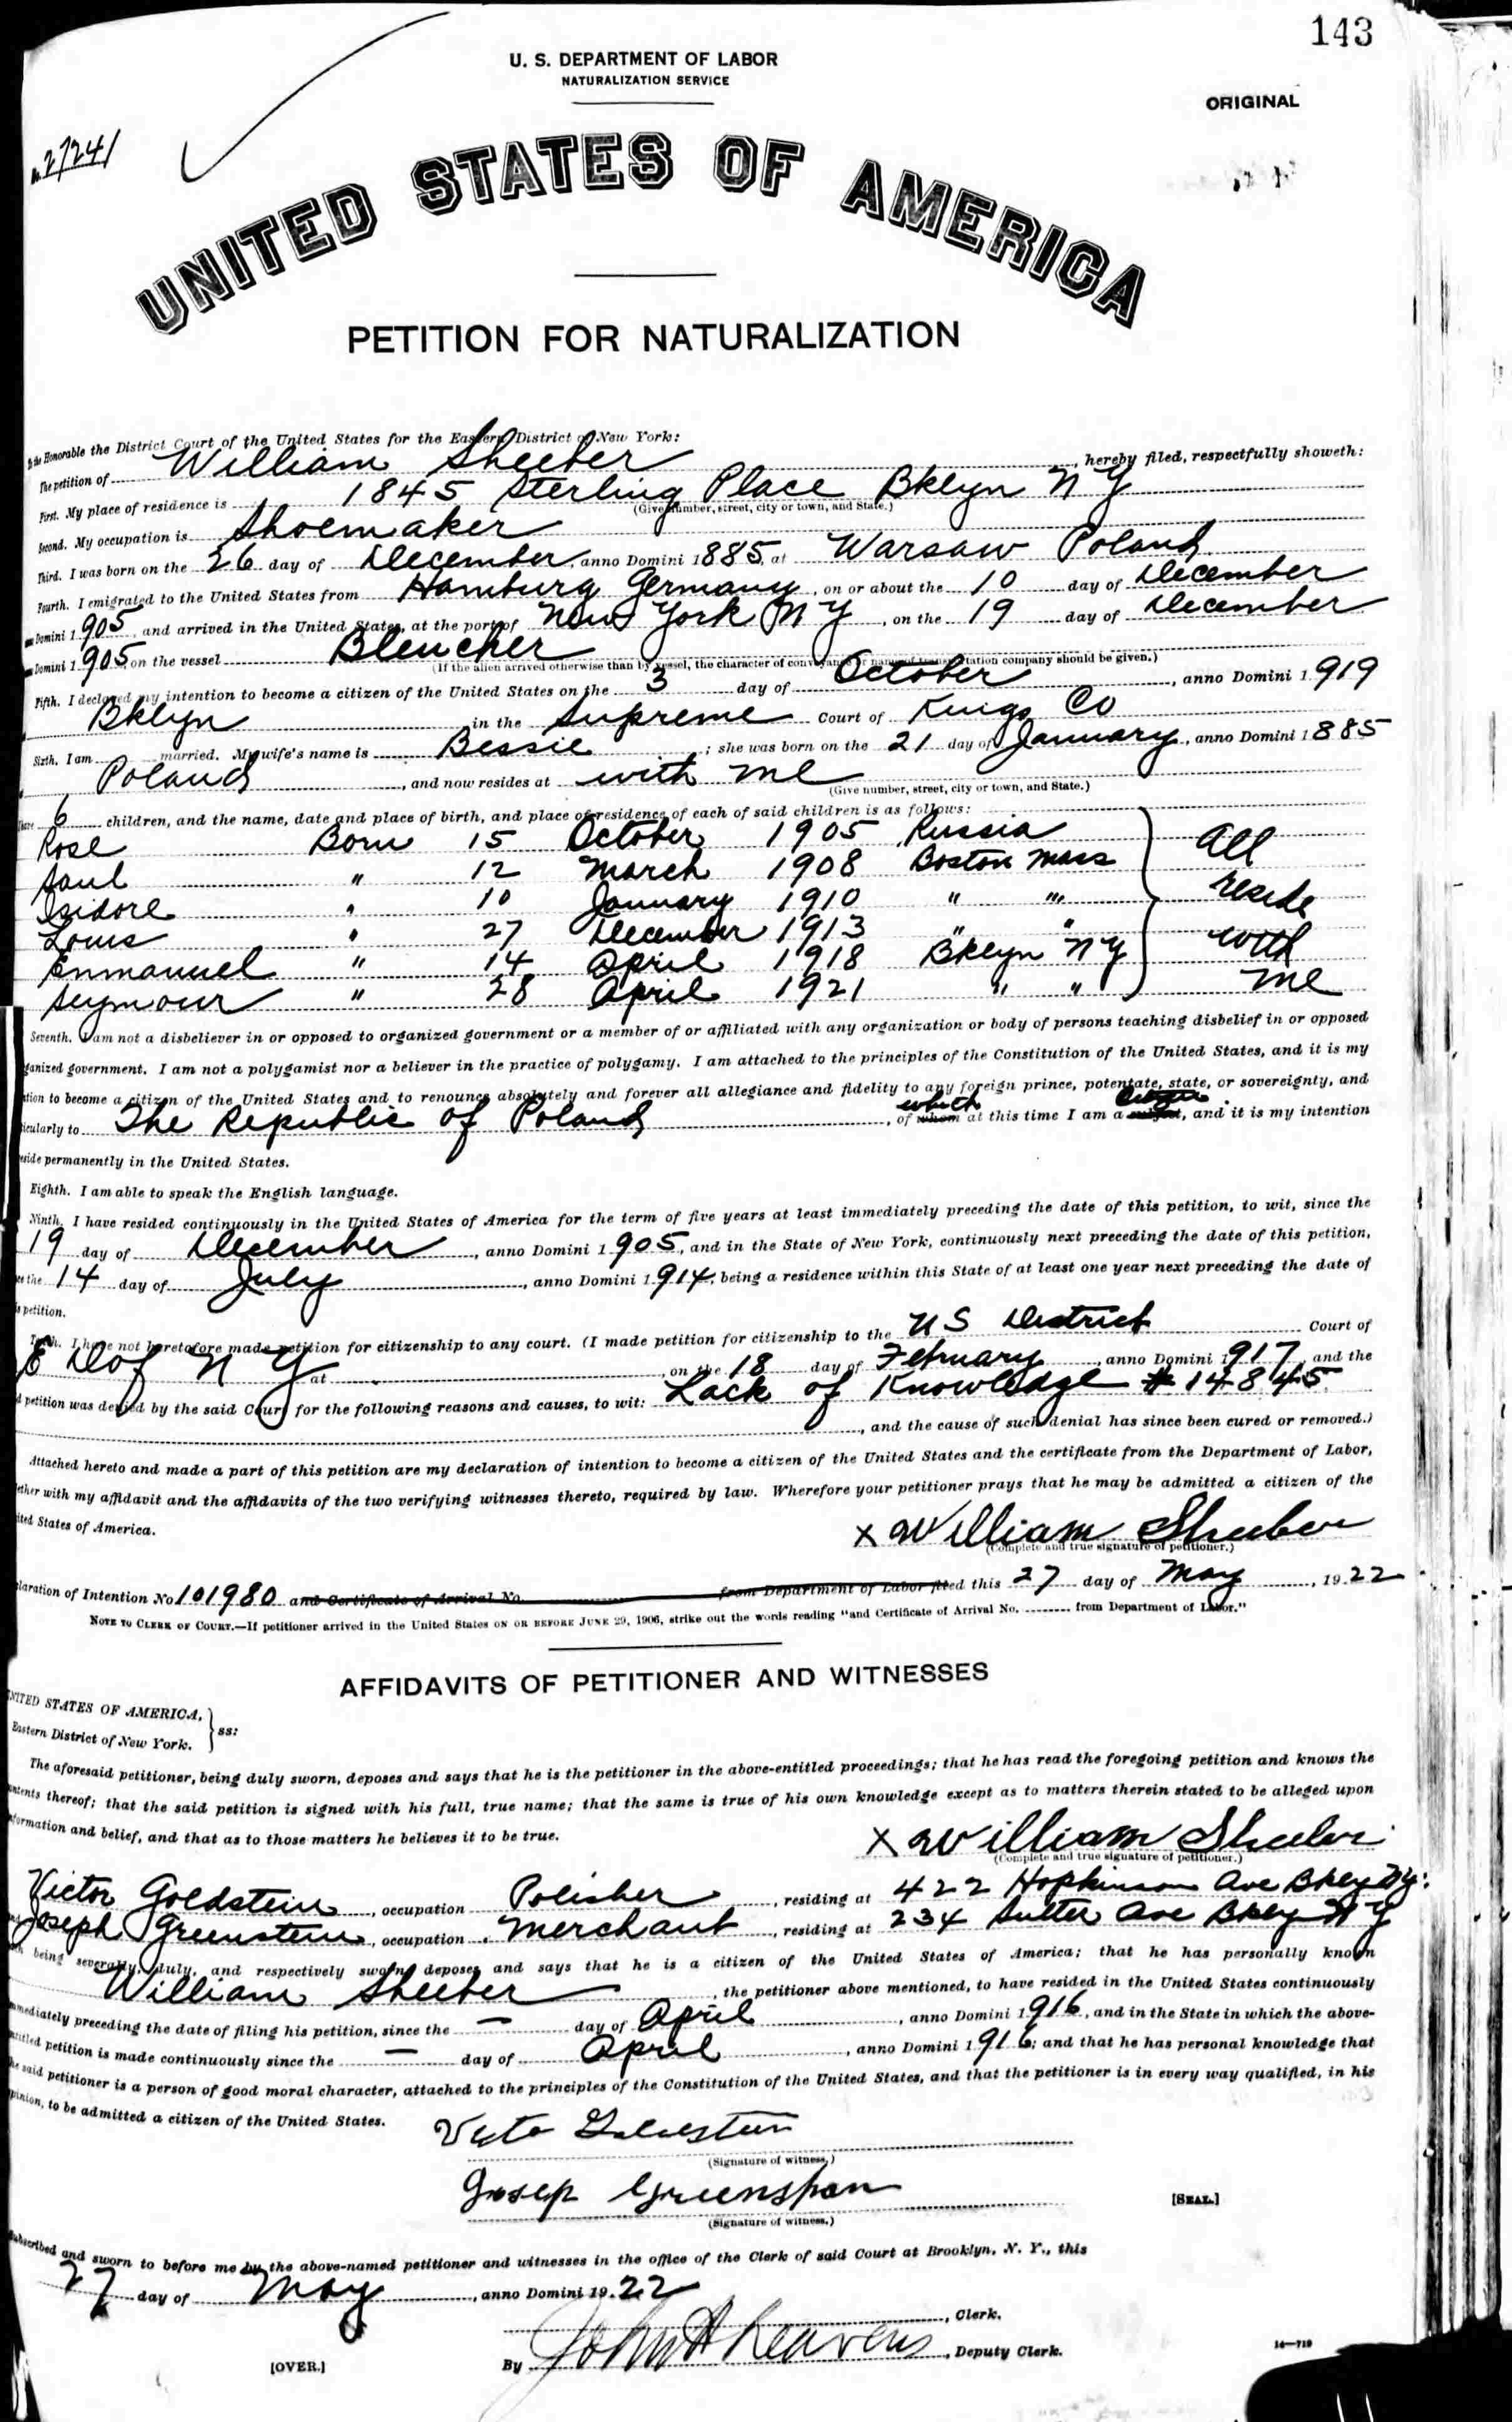 143
U. S. DEPARTMENT OF LABOR
NATURALIZATION SERVICE
ORIGINAL
27241
UNITED STATES OF AMERICA
PETITION FOR NATURALIZATION
Honorable the District Court of the United States for the Eastern District of New York:
The petition of William Sheeber, hereby filed, respectfully showeth:
First. My place of residence is 1845 Sterling Place Bklyn N Y
(Give number, street, city or town, and State.)
Second. My occupation is Shoemaker
Third. I was born on the 26 day of December, anno Domini 1885, at Warsaw Poland
Fourth. I emigrated to the United States from Hamburg Germany, on or about the 10 day of December
Domini 1905, and arrived in the United States, at the port of New York N Y, on the 19 day of December
Domini 1905 on the vessel Bleucher
(If the alien arrived otherwise than by vessel, the character of conveyance or name of transportation company should be given.)
Fifth. I declared my intention to become a citizen of the United States on the 3 day of October, anno Domini 1919
Bklyn in the Supreme Court of Kings Co
Sixth. I am married. My wife's name is Bessie; she was born on the 21 day of January, anno Domini 1885
Poland, and now resides at with me
(Give number, street, city or town, and State.)
6 children, and the name, date and place of birth, and place of residence of each of said children is as follows:
Rose Born 15 October 1905 Russia All
Saul " 12 March 1908 Boston Mass
Isidore " 10 January 1910 " " reside
Louis " 27 December 1913 " " with
Enmanuel " 14 April 1918 Bklyn N Y
Seymour " 28 April 1921 " " me
Seventh. I am not a disbeliever in or opposed to organized government or a member of or affiliated with any organization or body of persons teaching disbelief in or opposed
ganized government. I am not a polygamist nor a believer in the practice of polygamy. I am attached to the principles of the Constitution of the United States, and it is my
tion to become a citizen of the United States and to renounce absolutely and forever all allegiance and fidelity to any foreign prince, potentate, state, or sovereignty, and
which
icularly to The Republic of Poland, of whom at this time I am a, and it is my intention
side permanently in the United States.
Eighth. I am able to speak the English language.
Ninth. I have resided continuously in the United States of America for the term of five years at least immediately preceding the date of this petition, to wit, since the
19 day of December, anno Domini 1905, and in the State of New York, continuously next preceding the date of this petition,
the 14 day of July, anno Domini 1914, being a residence within this State of at least one year next preceding the date of
petition.
Tenth. I have not heretofore made petition for citizenship to any court. (I made petition for citizenship to the U S District Court of
E D of N Y at on the 18 day of February, anno Domini 1917, and the
petition was denied by the said Court for the following reasons and causes, to wit: Lack of Knowledge # 14845
, and the cause of such denial has since been cured or removed.)
Attached hereto and made a part of this petition are my declaration of intention to become a citizen of the United States and the certificate from the Department of Labor,
ether with my affidavit and the affidavits of the two verifying witnesses thereto, required by law. Wherefore your petitioner prays that he may be admitted a citizen of the
ited States of America.
x William Sheeber
(Complete and true signature of petitioner.)
laration of Intention No 101980 and Certificate of Arrival No. from Department of Labor filed this 27 day of May, 1922
NOTE TO CLERK OF COURT.—If petitioner arrived in the United States ON OR BEFORE JUNE 29, 1906, strike out the words reading "and Certificate of Arrival No. ........ from Department of Labor."
AFFIDAVITS OF PETITIONER AND WITNESSES
UNITED STATES OF AMERICA,
Eastern District of New York. } ss:
The aforesaid petitioner, being duly sworn, deposes and says that he is the petitioner in the above-entitled proceedings; that he has read the foregoing petition and knows the
ntents thereof; that the said petition is signed with his full, true name; that the same is true of his own knowledge except as to matters therein stated to be alleged upon
formation and belief, and that as to those matters he believes it to be true.
x William Sheeber
(Complete and true signature of petitioner.)
Victor Goldstein, occupation Polisher, residing at 422 Hopkinson Ave Bkly NY.
Joseph Greenstein, occupation Merchant, residing at 234 Sutter Ave Bkly N Y
being severally, duly, and respectively sworn, deposes and says that he is a citizen of the United States of America; that he has personally known
William Sheeber, the petitioner above mentioned, to have resided in the United States continuously
mmediately preceding the date of filing his petition, since the — day of April, anno Domini 1916, and in the State in which the above-
ntitled petition is made continuously since the — day of April, anno Domini 1916; and that he has personal knowledge that
he said petitioner is a person of good moral character, attached to the principles of the Constitution of the United States, and that the petitioner is in every way qualified, in his
pinion, to be admitted a citizen of the United States.
(Signature of witness.)
Josep Greenspan
(Signature of witness.)
[SEAL.]
Subscribed and sworn to before me by the above-named petitioner and witnesses in the office of the Clerk of said Court at Brooklyn, N. Y., this
27 day of May, anno Domini 1922
, Clerk.
By John A Leavens, Deputy Clerk.
[OVER.]
14—719